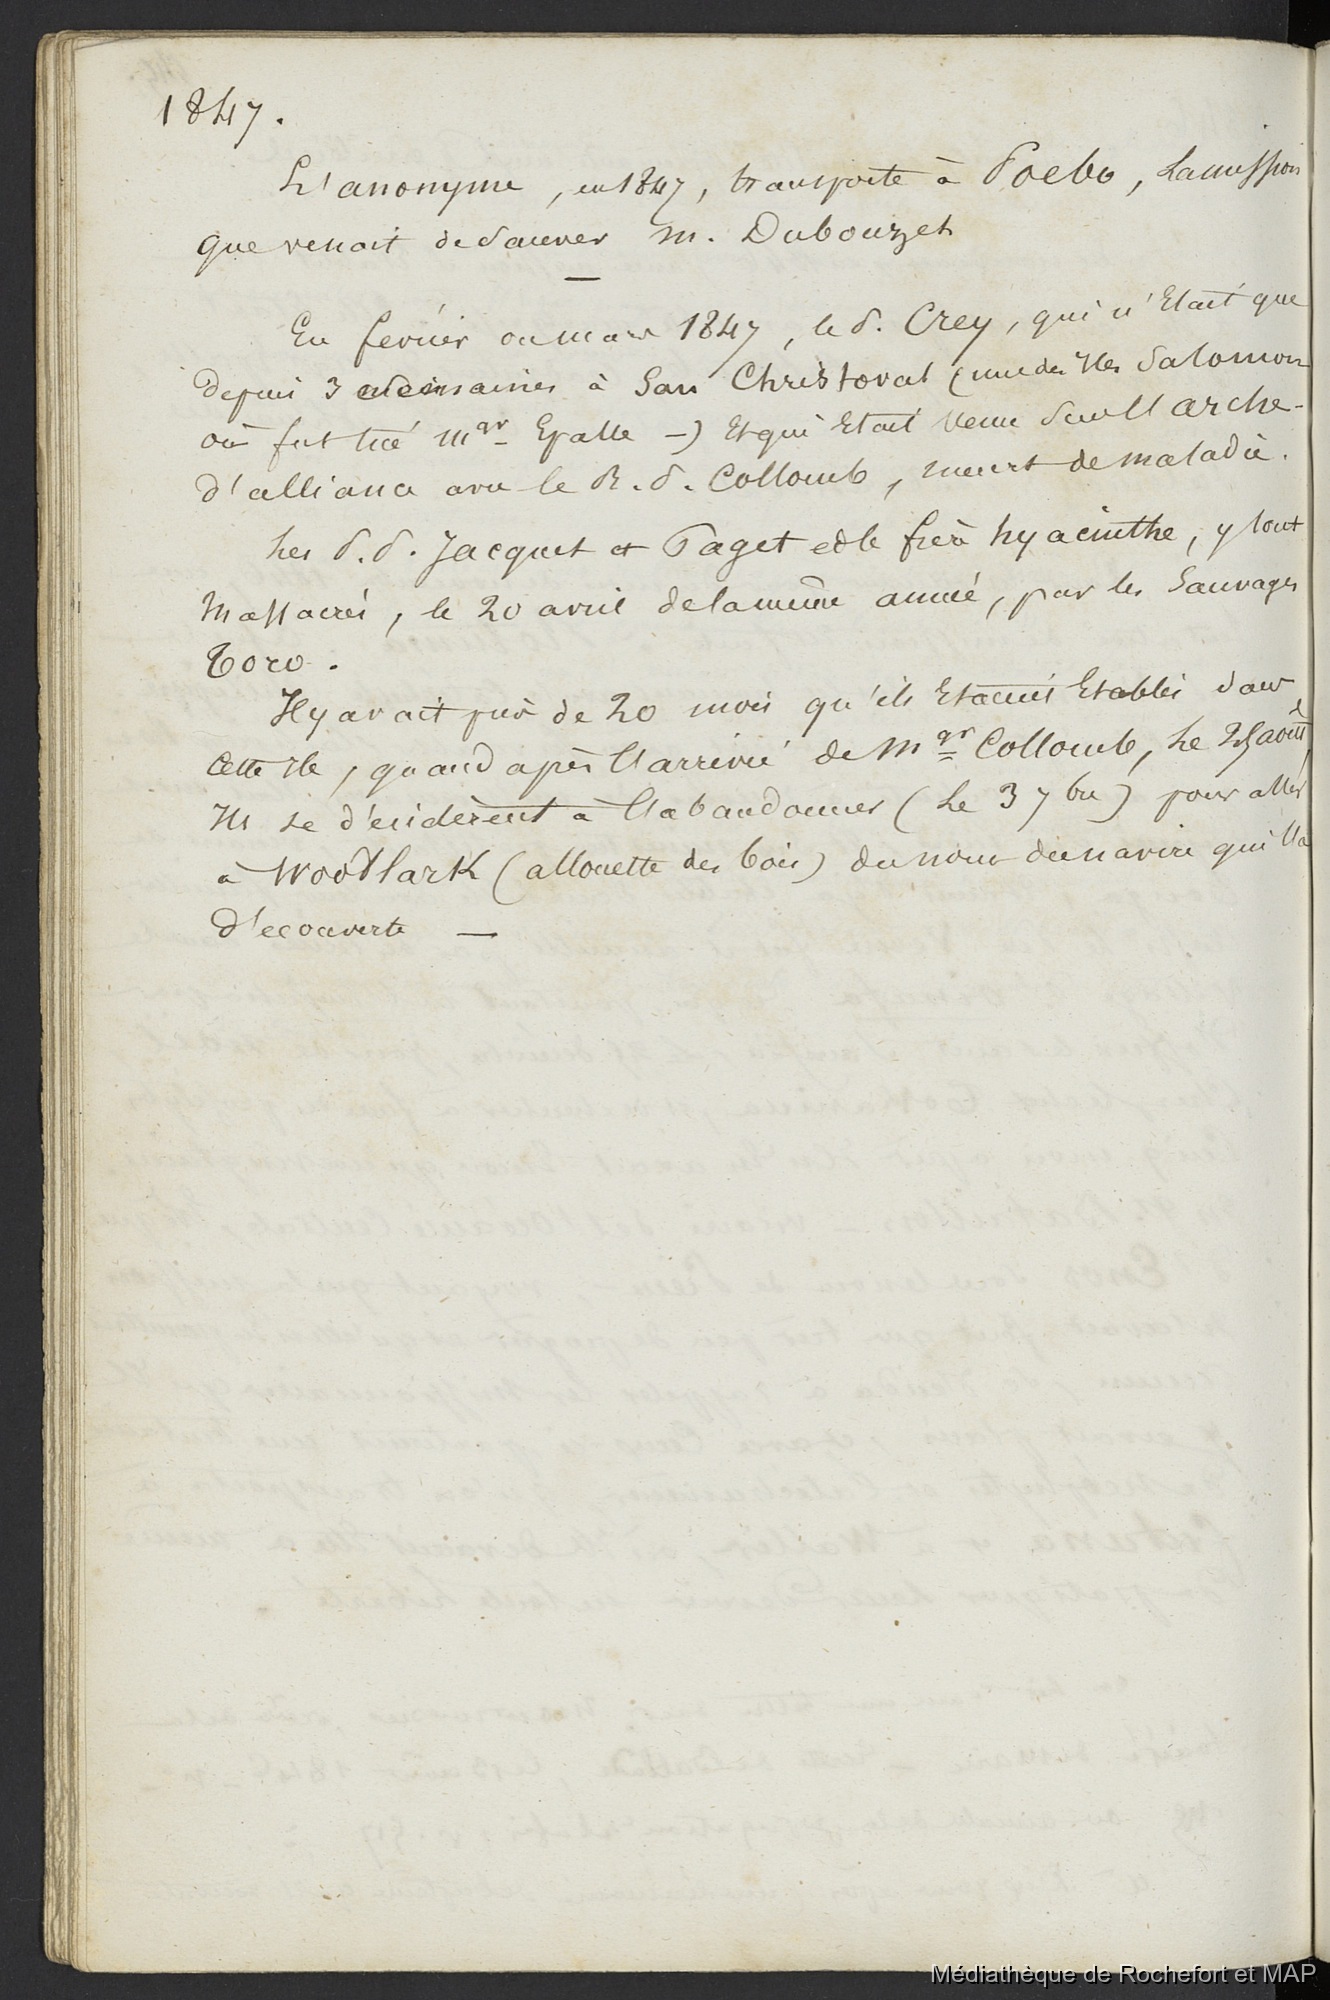 1847.
L'anonyme, en 1847, transporte à Poebo, la mission
que venait de sauver M. Dubouzet
—
En fevrier ou mars 1847, le P. Crey, qui n'etait que
depuis 3 semaines à San Christoval (une des Iles Salomon
où fut tué Mgr Epalle —) et qui etait venu sur l'arche-
d'alliance avec le R. P. Collomb, meurt de maladie.
Les P.P. Jacquet et Paget et le frère hyacinthe, y sont
massacrés, le 20 avril de la même année, par les Sauvages
Toro.
Il y avait près de 20 mois qu'ils etaient etablis dans
cette Ile, quand après l'arrivée de Mgr Collomb, le août,
Ils se déciderent à l'abandonner (le 3 7bre) pour aller
à Woodlark (allouette des bois) du nom du navire qui l'a
d'ecouverte —
Médiathèque de Rochefort et MAP